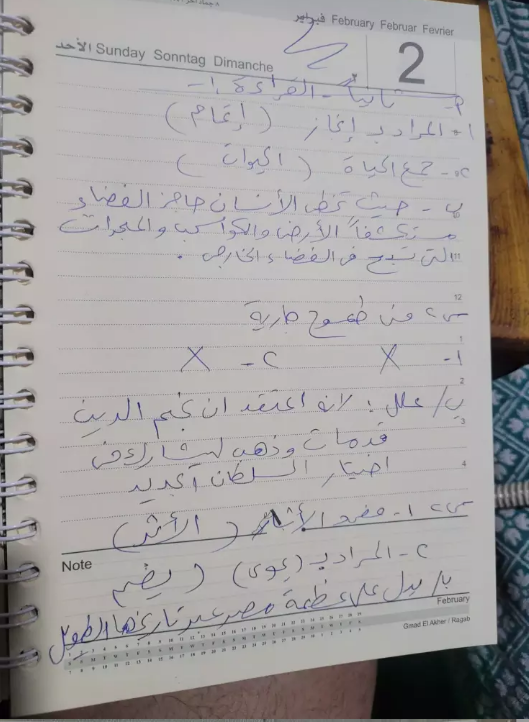 فبراير February Februar Fevrier
الأحد Sunday Sonntag Dimanche
2
ثانياً - القراءة :-
١- المراد بـ إنجاز ( إتمام )
٢- جمع الحياة ( الحيوات )
ب - حيث تخطى الأنسان حاجز الفضاء
مستكشفاً الأرض والكواكب والمجرات
التى تسبح فى الفضاء الخارجى .
س٢ من طموح جارية
١- X ٢- X
ب/ علل : لانه اعتقد ان نجم الدين
قد مات وذهب ليشارك فى
اختيار السلطان الجديد
س٣ ١- مفرد الأثار ( الأثر )
Note
٢- المراد بـ (يحوى) ( يضم
ب/ يدل على عظمة مصر عبر تاريخها الطويل
February
Gmad El Akher / Ragab